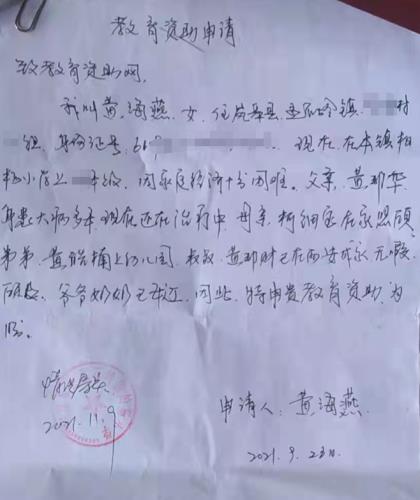 教育资助申请
致教育资助网:
我叫黄海燕,女,住岚皋县孟石岭镇 村
组,身份证号,61 现在,在本镇
小学上 年级,因家庭经济十分困难。父亲,黄邦华
身患大病多年现在还在治疗中,母亲,柯细 在家照顾
弟弟,黄 上幼儿园,叔叔,黄邦财已在西安成家无暇
顾及,爷爷奶奶已年迈,因此,特申贵教育资助,为
盼。
情况属实
2021.11.9
申请人:黄海燕
2021.9.23日